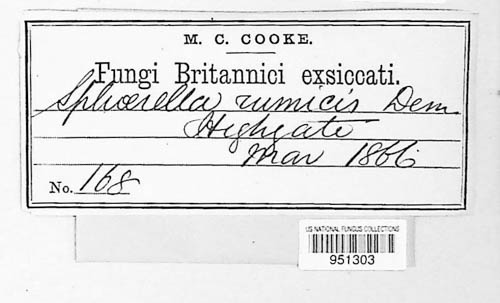 M. C. COOKE.
Fungi Britannici exsiccati.
Sphærella rumicis Dem.
Highgate
Mar 1866
No. 168
US NATIONAL FUNGUS COLLECTIONS
951303